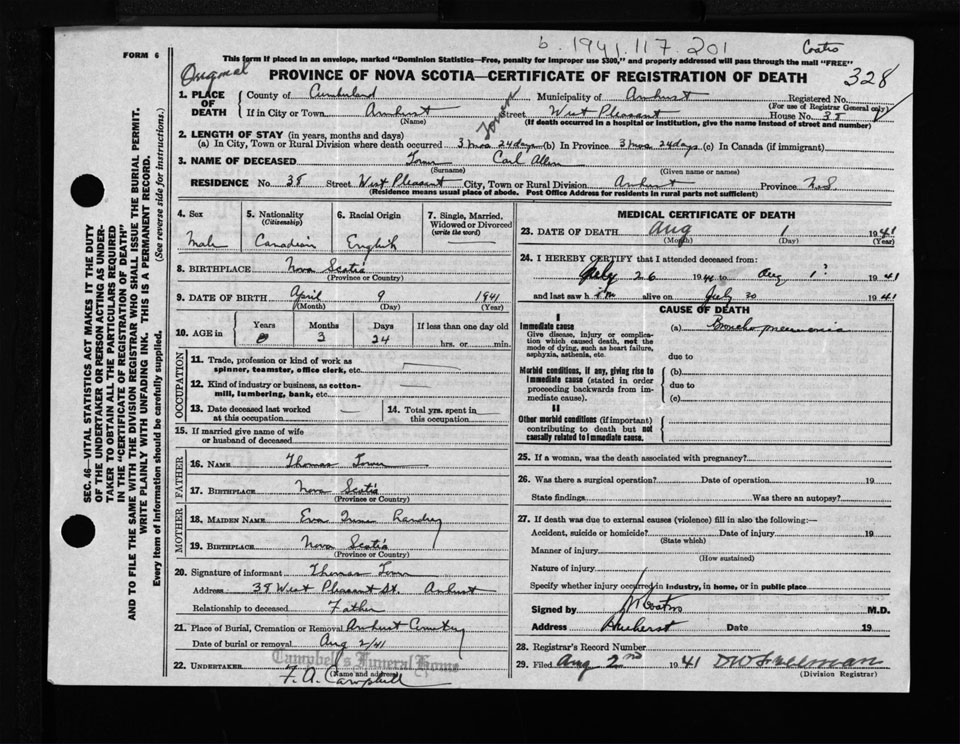 b. 1941.117.201
Coates
FORM 6
This form if placed in an envelope, marked "Dominion Statistics—Free, penalty for improper use $300," and properly addressed will pass through the mail "FREE"
Original
PROVINCE OF NOVA SCOTIA—CERTIFICATE OF REGISTRATION OF DEATH
328
1. PLACE OF DEATH
County of Cumberland Municipality of Amherst Registered No.
(For use of Registrar General only)
If in City or Town Amherst Street West Pleasant House No. 38
(Name) (If death occurred in a hospital or institution, give the name instead of street and number)
Tower
2. LENGTH OF STAY (in years, months and days)
(a) In City, Town or Rural Division where death occurred 3 mos 24 days (b) In Province 3 mos 24 days (c) In Canada (if immigrant)
3. NAME OF DECEASED Tower Carl Allen
(Surname) (Given name or names)
RESIDENCE No 38 Street West Pleasant City, Town or Rural Division Amherst Province N.S.
(Residence means usual place of abode. Post Office Address for residents in rural parts not sufficient)
4. Sex
Male
5. Nationality
(Citizenship)
Canadian
6. Racial Origin
English
7. Single, Married, Widowed or Divorced
(write the word)
8. BIRTHPLACE Nova Scotia
(Province or Country)
9. DATE OF BIRTH April 9 1941
(Month) (Day) (Year)
10. AGE in
Years Months Days If less than one day old
0 3 24 hrs. or min.
OCCUPATION
11. Trade, profession or kind of work as
spinner, teamster, office clerk, etc.
12. Kind of industry or business, as cotton-
mill, lumbering, bank, etc.
13. Date deceased last worked
at this occupation
14. Total yrs. spent in
this occupation
15. If married give name of wife
or husband of deceased
FATHER
16. NAME Thomas Tower
17. BIRTHPLACE Nova Scotia
(Province or Country)
MOTHER
18. MAIDEN NAME Eva Landry
19. BIRTHPLACE Nova Scotia
(Province or Country)
20. Signature of informant Thomas Tower
Address 38 West Pleasant St. Amherst
Relationship to deceased Father
21. Place of Burial, Cremation or Removal Amherst Cemetery
Date of burial or removal Aug 2/41
Campbell's Funeral Home
22. UNDERTAKER F. A. Campbell
(Name and address)
MEDICAL CERTIFICATE OF DEATH
23. DATE OF DEATH Aug 1 1941
(Month) (Day) (Year)
24. I HEREBY CERTIFY that I attended deceased from:
July 26 1941 to Aug 1 1941
and last saw him alive on July 30 1941
CAUSE OF DEATH
I
Immediate cause
Give disease, injury or complica-
tion which caused death, not the
mode of dying, such as heart failure,
asphyxia, asthenia, etc.
(a) Bronchopneumonia
due to
Morbid conditions, if any, giving rise to
immediate cause (stated in order
proceeding backwards from im-
mediate cause).
(b)
due to
(c)
II
Other morbid conditions (if important)
contributing to death but not
causally related to immediate cause.
25. If a woman, was the death associated with pregnancy?
26. Was there a surgical operation? Date of operation 19
State findings Was there an autopsy?
27. If death was due to external causes (violence) fill in also the following:—
Accident, suicide or homicide? Date of injury 19
(State which)
Manner of injury
(How sustained)
Nature of injury
Specify whether injury occurred in industry, in home, or in public place
Signed by Coates M.D.
Address Amherst Date 19
28. Registrar's Record Number
29. Filed Aug 2nd 1941
(Division Registrar)
SEC. 46—VITAL STATISTICS ACT MAKES IT THE DUTY
OF THE UNDERTAKER OR PERSON ACTING AS UNDER-
TAKER TO OBTAIN ALL THE PARTICULARS REQUIRED
IN THE "CERTIFICATE OF REGISTRATION OF DEATH"
AND TO FILE THE SAME WITH THE DIVISION REGISTRAR WHO SHALL ISSUE THE BURIAL PERMIT.
WRITE PLAINLY WITH UNFADING INK. THIS IS A PERMANENT RECORD.
Every item of information should be carefully supplied. (See reverse side for instructions.)